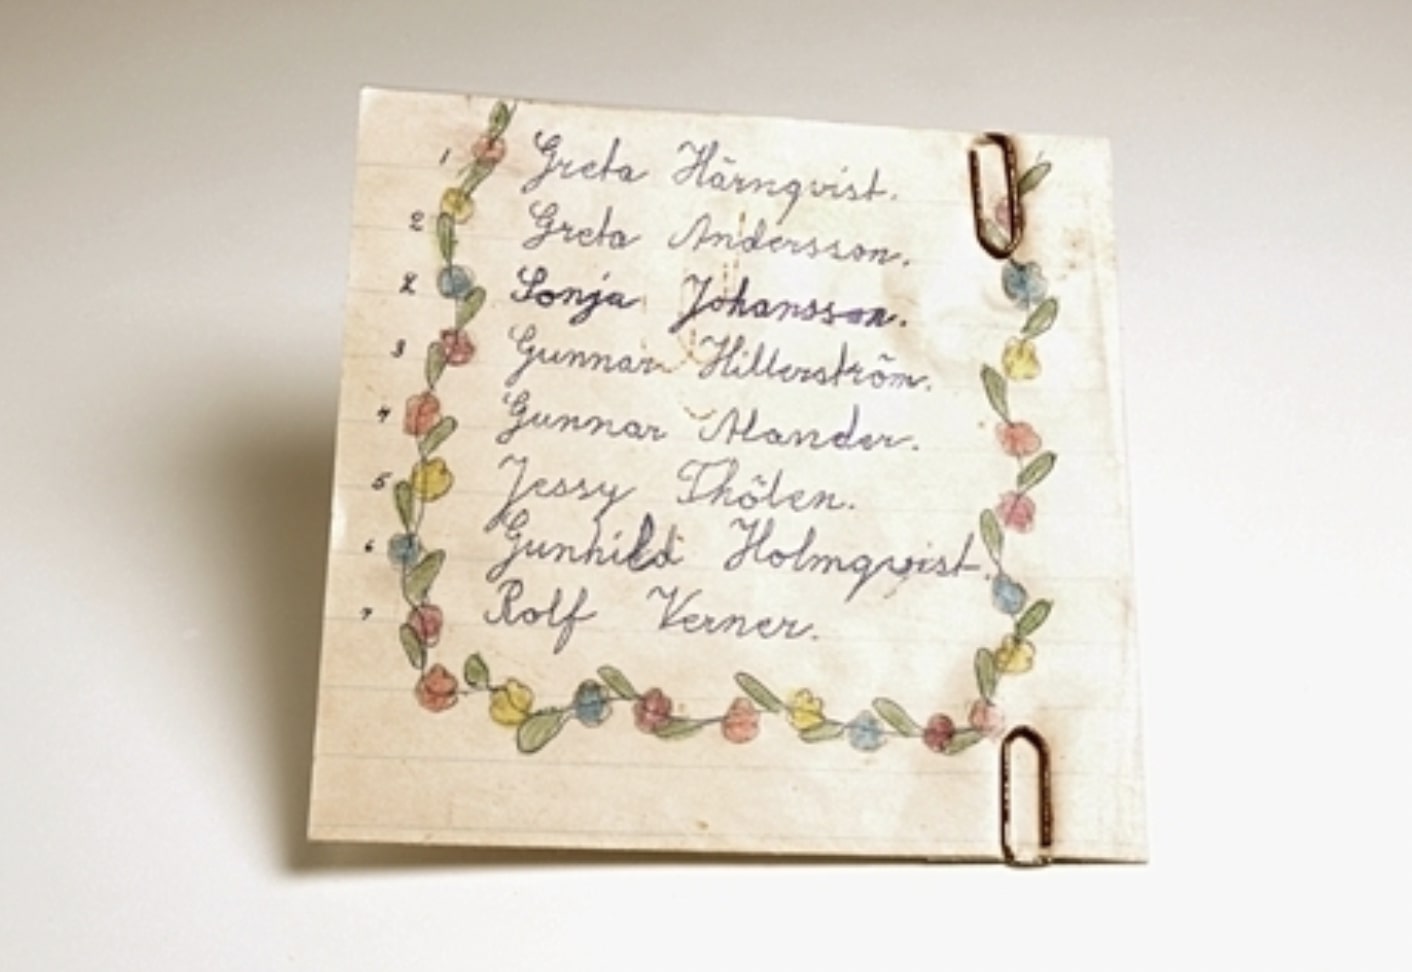 1 Greta Härnqvist.
2 Greta Andersson.
2 Sonja Johansson.
3 Gunnar Hillerström.
4 Gunnar Alander.
5 Jessy Thölen.
6 Gunhild Holmqvist.
7 Rolf Verner.